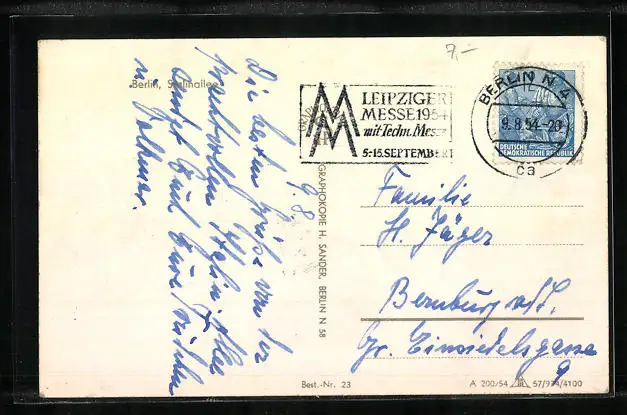 7,-
Berlin, Stalinallee
9.8.
Die besten Grüße von der
prachtvollen Stalin-Allee
sendet Euch Eure
u. Volkmar.
GRAPHOKOPIE H. SANDER, BERLIN N 58
LEIPZIGER
MESSE 1954
mit Techn. Messe
5-15. SEPTEMBER
BERLIN N 4
9.8.54-20
ca
DEUTSCHE
DEMOKRATISCHE REPUBLIK
Familie
H. Jäger
Bernburg a/S.
Gr. Einsiedelsgasse
9
Best.-Nr. 23
A 200/54 57/974/4100